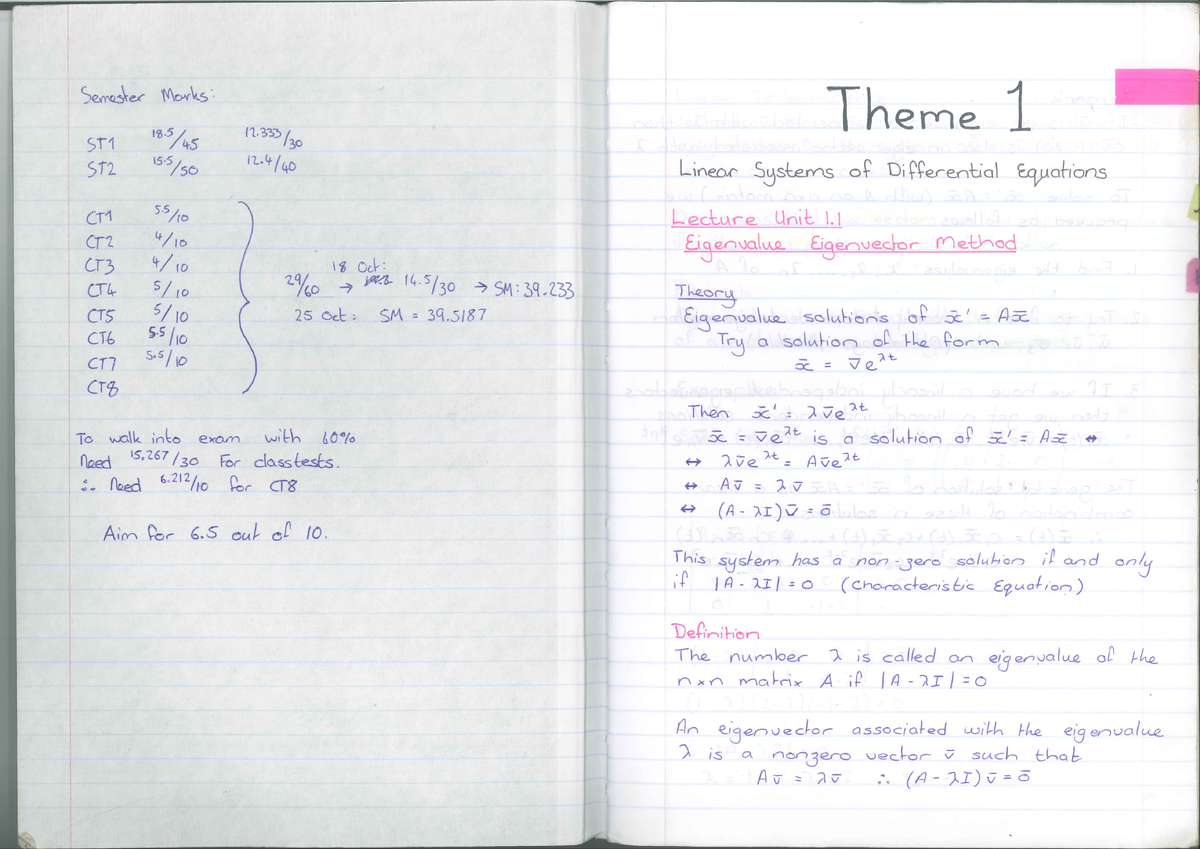 Semester Marks:
ST1 18.5/45 12.333/30
ST2 15.5/50 12.4/40
CT1 5.5/10
CT2 4/10
CT3 4/10
CT4 5/10
CT5 5/10
CT6 5.5/10
CT7 5.5/10
CT8
18 Oct:
29/60 → 14.5/30 → SM: 39.233
25 Oct: SM = 39.5187
To walk into exam with 60%
Need 15.267/30 for classtests.
∴ Need 6.212/10 for CT8
Aim for 6.5 out of 10.
Theme 1
Linear Systems of Differential Equations
Lecture Unit 1.1
Eigenvalue Eigenvector Method
Theory
Eigenvalue solutions of x̄' = Ax̄
Try a solution of the form
x̄ = v̄e^λt
Then x̄' = λv̄e^λt
x̄ = v̄e^λt is a solution of x̄' = Ax̄ ↔
↔ λv̄e^λt = Av̄e^λt
↔ Av̄ = λv̄
↔ (A - λI)v̄ = ō
This system has a non-zero solution if and only
if |A - λI| = 0 (Characteristic Equation)
Definition
The number λ is called an eigenvalue of the
n×n matrix A if |A - λI| = 0
An eigenvector associated with the eigenvalue
λ is a nonzero vector v̄ such that
Av̄ = λv̄ ∴ (A - λI)v̄ = ō